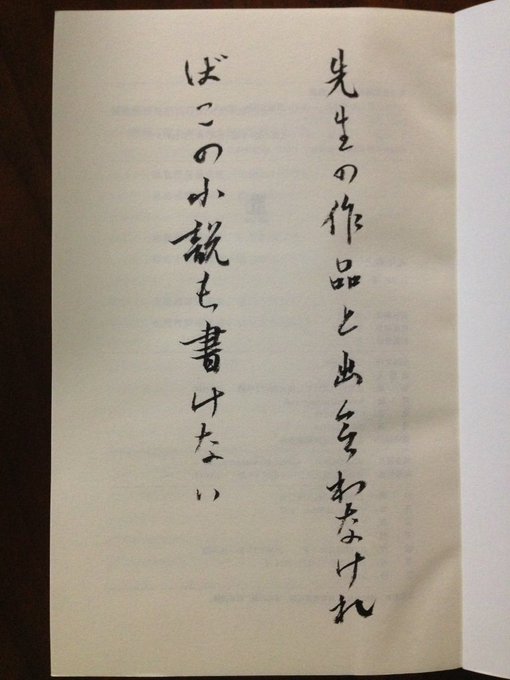 先生の作品と出会わなけれ
ばこの小説も書けない